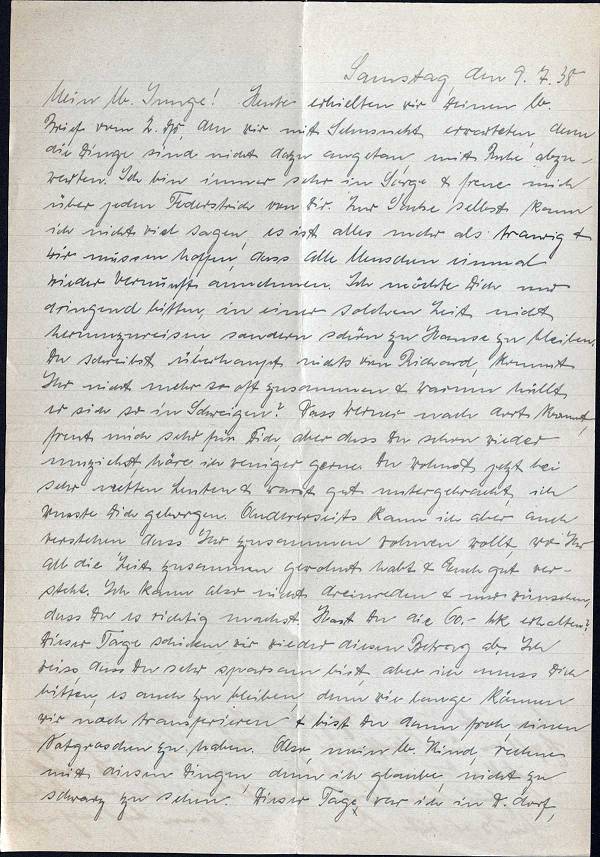 Samstag den 9.7.38
Mein lb. Junge! Heute erhielten wir Deinen lb.
Brief vom 2. ds, den wir mit Sehnsucht erwarteten, denn
die Dinge sind nicht dazu angetan, mit Ruhe abzu-
warten. Ich bin immer sehr in Sorge & freue mich
über jeden Federstrich von Dir. Zur Sache selbst kann
ich nicht viel sagen, es ist alles mehr als traurig &
wir müssen hoffen, dass alle Menschen einmal
wieder Vernunft annehmen. Ich möchte Dich nur
dringend bitten, in einer solchen Zeit nicht
herumzureisen sondern schön zu Hause zu bleiben.
Du schreibst überhaupt nichts von Richard, kommt
Ihr nicht mehr so oft zusammen & warum hüllt
er sich so in Schweigen? Dass Werner nach dort kommt,
freut mich sehr für Dich aber dass Du schon wieder
umziehst höre ich weniger gerne. Du wohnst jetzt bei
sehr netten Leuten & warst gut untergebracht, ich
wusste Dich geborgen. Andererseits kann ich aber auch
verstehen dass Ihr zusammen wohnen wollt, wo Ihr
all die Zeit zusammen gewohnt habt & Euch gut ver-
steht. Ich kann also nichts dreinreden & nur wünschen,
dass Du es richtig machst. Hast Du die 60.- Mk erhalten?
Dieser Tage schicken wir wieder diesen Betrag ab. Ich
weiss dass Du sehr sparsam bist aber ich muss Dich
bitten, es auch zu bleiben, denn wie lange können
wir noch transferieren & bist Du dann froh einen
Notgroschen zu haben. Also, mein lb. Kind rechne
mit diesen Dingen denn ich glaube, nicht zu
schwarz zu sehen. Dieser Tage war ich in D.dorf,